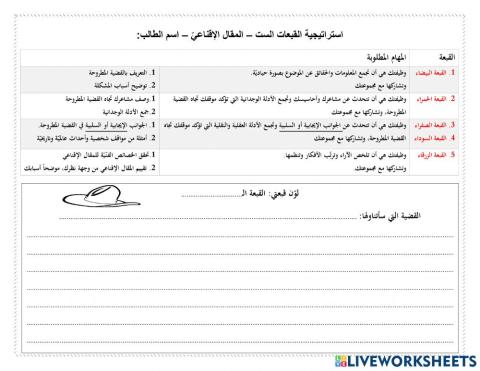 استراتيجية القبعات الست – المقال الإقناعيّ – اسم الطالب:
القبعة المهام المطلوبة
1. القبعة البيضاء وظيفتك هي أن تجمع المعلومات والحقائق عن الموضوع بصورة حياديّة. 1. التعريف بالقضية المطروحة
وتشاركها مع مجموعتك 2. توضيح أسباب المشكلة
2. القبعة الحمراء وظيفتك هي أن تتحدث عن مشاعرك وأحاسيسك وتجمع الأدلة الوجدانية التي تؤكد موقفك تجاه القضية 1. وصف مشاعرك تجاه القضية المطروحة
المطروحة، وتشاركها مع مجموعتك 2. جمع الأدلة الوجدانية
3. القبعة الصفراء وظيفتك هي أن تتحدث عن الجوانب الإيجابية أو السلبية وتجمع الأدلة العقلية والنقلية التي تؤكد موقفك تجاه 1. الجوانب الإيجابية أو السلبية في القضية المطروحة.
4. القبعة السوداء القضية المطروحة، وتشاركها مع مجموعتك 2. أمثلة من مواقف شخصية وأحداث عالميّة وتاريخيّة
5. القبعة الزرقاء وظيفتك هي أن تلخص الآراء وترتّب الأفكار وتنظمها. 1. تحقق الخصائص الفنيّة للمقال الإقناعي
وتشاركها مع مجموعتك 2. تقييم المقال الإقناعي من وجهة نظرك، موضحاً أسبابك
لوّن قبعتي: القبعة الـ
القضية التي سأتناولها:
LIVEWORKSHEETS